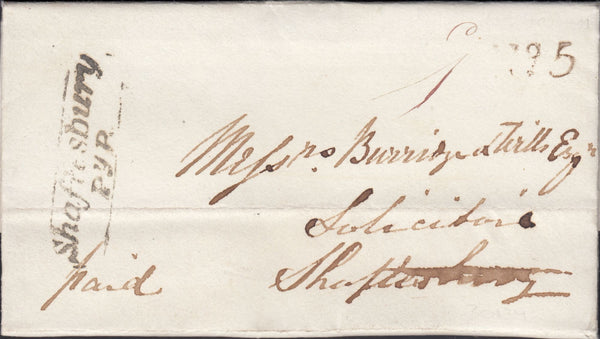 Shaftesbury
Py P.
No 5
Messrs Burridge & Wills Esqrs
Solicitors
Shaftesbury
paid